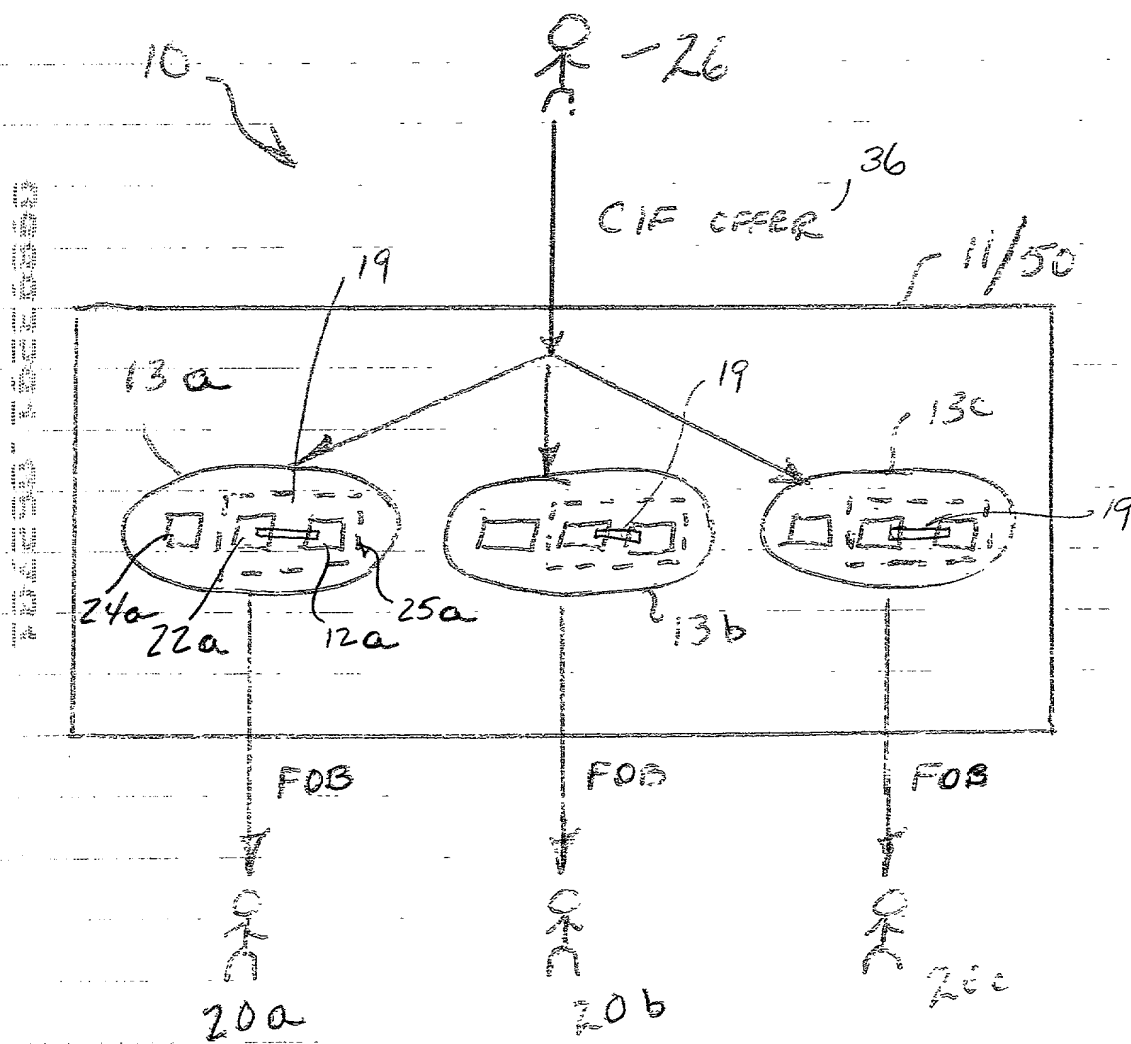 10
26
CIF OFFER 36
11/50
19
13a
19
13c
19
24a
22a
12a
25a
13b
FOB
FOB
FOB
20a
20b